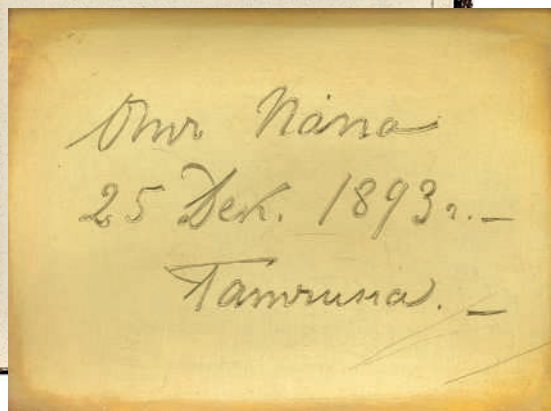 Отъ Пáпа
25 Дек. 1893 г. —
Гатчина. —